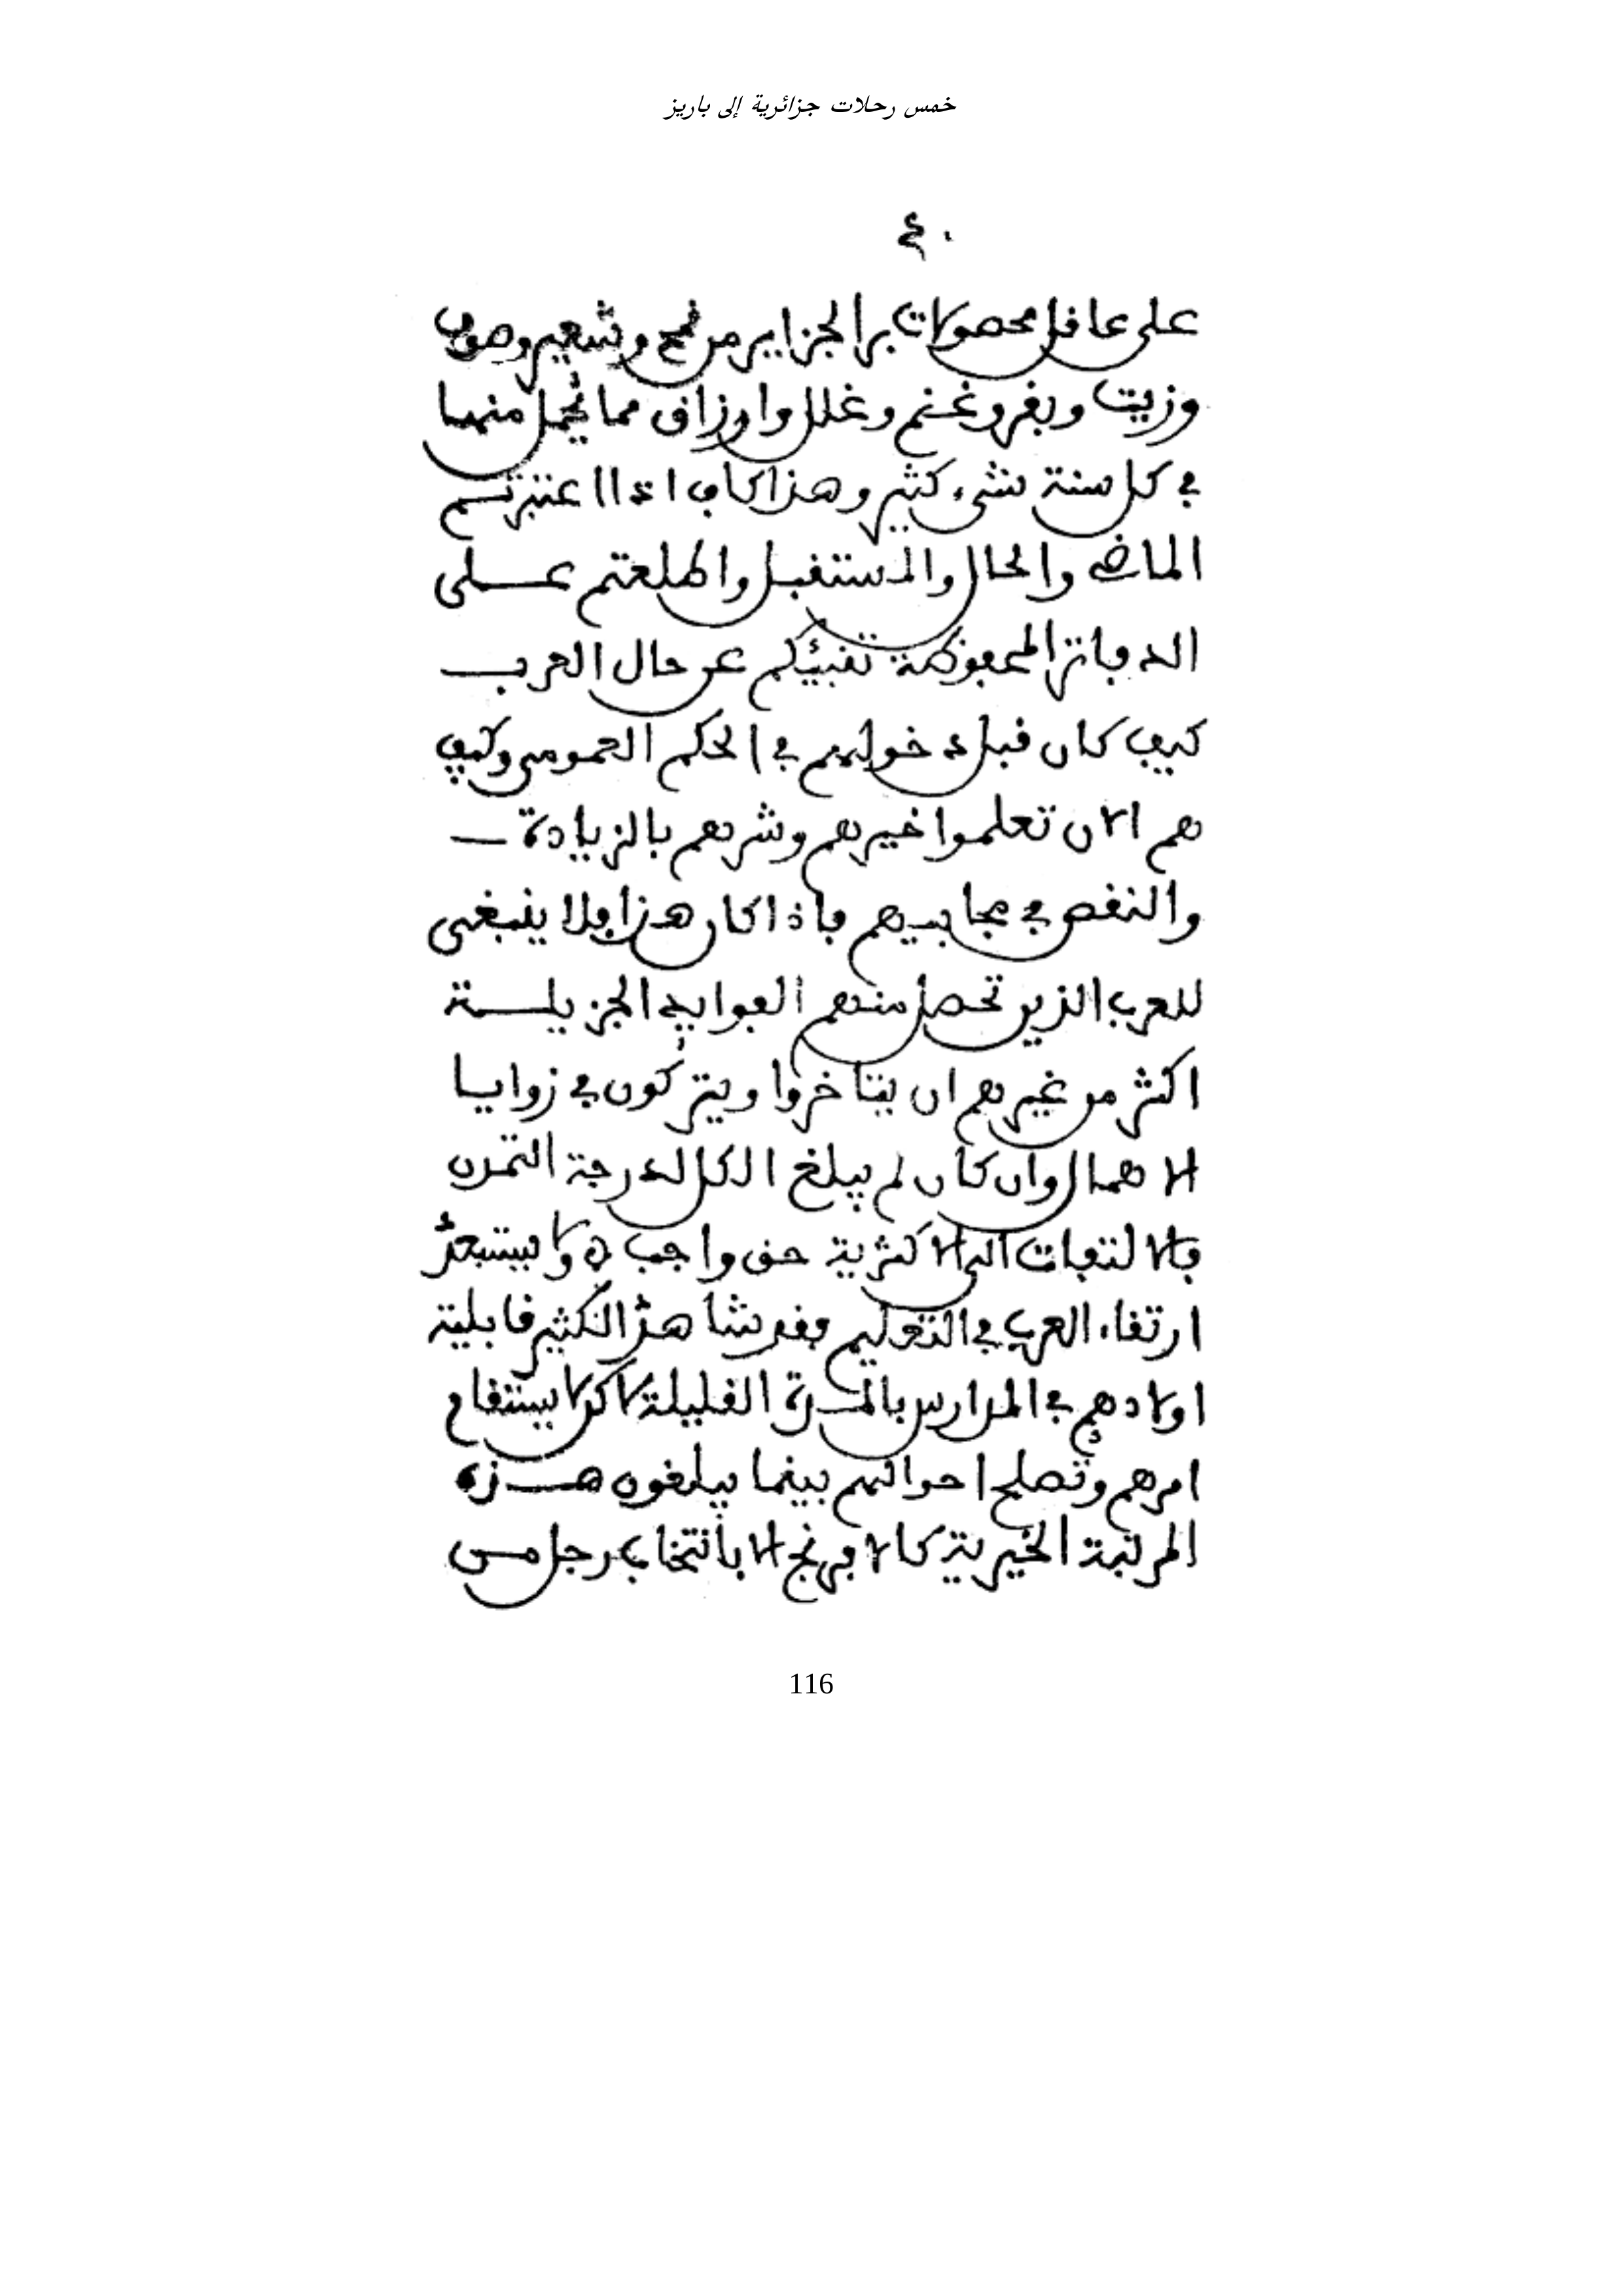 خمس رحلات جزائرية إلى باريز
٤٠
على عاقل محصولات بر الجزاير من قمح وشعير وصوف
وزيت وبقر وغنم وغلل وارزاق مما يحمل منها
في كل سنة شيء كثير وهذا كاف اذا اعتبرتم
الماضي والحال والمستقبل واطلعتم على
الدفاتر المحفوظة تنبيئكم عن حال العرب
كيف كان قبل دخولهم في الحكم العمومي وكيف
هم الان تعلموا خيرهم وشرهم بالزيادة
والنقص في مجابيهم فاذا كان هذا فلا ينبغي
للعرب الذين تحصل منهم الفوايد الجزيلة
اكثر من غيرهم ان يتاخروا ويتركون في زوايا
الاهمال وان كان لم يبلغ الكل لدرجة التمدن
فالالتفات الى الاكثرية حق واجب ه ولا يستبعد
ارتقاء العرب في التعليم فقد شاهد الكثير قابلية
اولادهم في المدارس بالمدة القليلة لاكن لا يستقام
امرهم وتصلح احوالهم بينما يبلغون هذه
المرتبة الخيرية كالافرنج الا بانتخاب رجل من
116